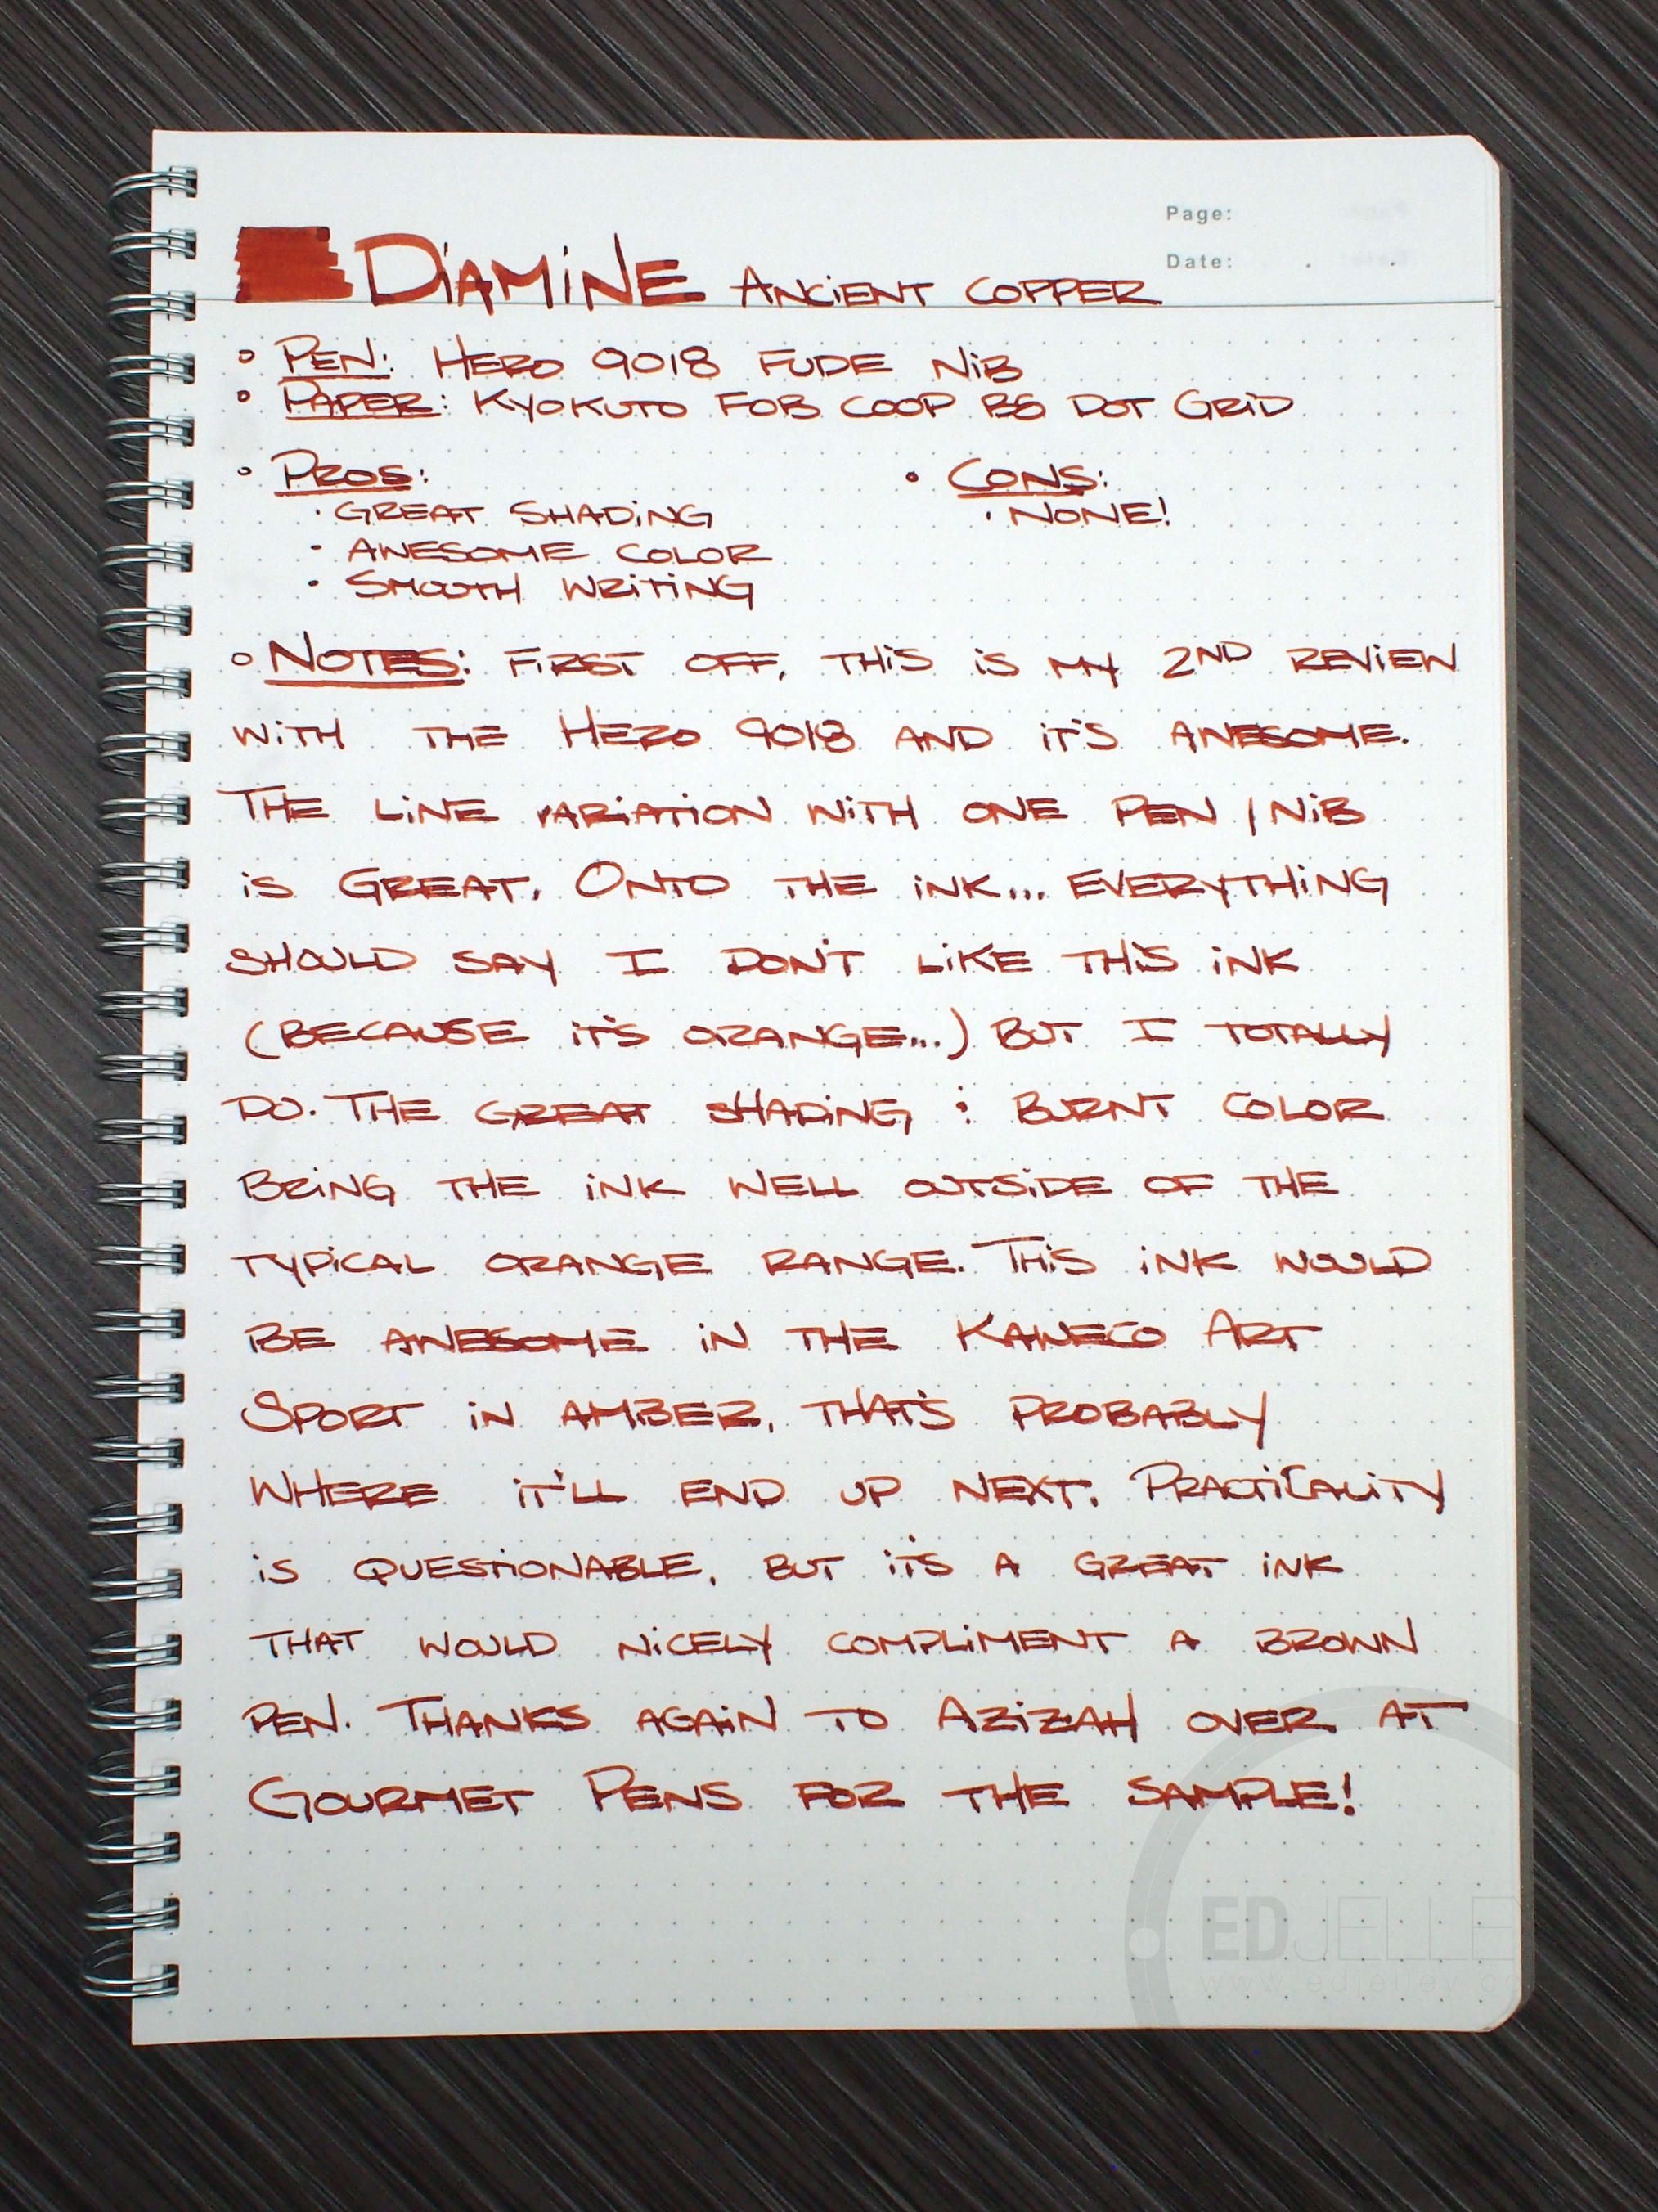 Page:
Date:
DiAMiNE ANCiENT COPPER
• PEN: HERO 9018 FUDE NiB
• PAPER: KYOKUTO FOB COOP B5 DOT GRiD
• PROS:
• GREAT SHADiNG
• AWESOME COLOR
• SMOOTH WRiTiNG
• CONS:
• NONE!
• NOTES: FiRST OFF, THiS iS MY 2ND REViEW
WiTH THE HERO 9018 AND iT'S AWESOME.
THE LiNE VARiATiON WiTH ONE PEN / NiB
iS GREAT. ONTO THE iNK... EVERYTHiNG
SHOULD SAY I DON'T LiKE THiS iNK
(BECAUSE iT'S ORANGE...) BUT I TOTALLY
DO. THE GREAT SHADiNG & BURNT COLOR
BRiNG THE iNK WELL OUTSiDE OF THE
TYPiCAL ORANGE RANGE. THiS iNK WOULD
BE AWESOME iN THE KAWECO ART
SPORT iN AMBER, THAT'S PROBABLY
WHERE iT'LL END UP NEXT. PRACTiCALiTY
iS QUESTiONABLE, BUT iT'S A GREAT iNK
THAT WOULD NiCELY COMPLiMENT A BROWN
PEN. THANKS AGAiN TO AZiZAH OVER AT
GOURMET PENS FOR THE SAMPLE!
EDJELLE
www.edjelley.co